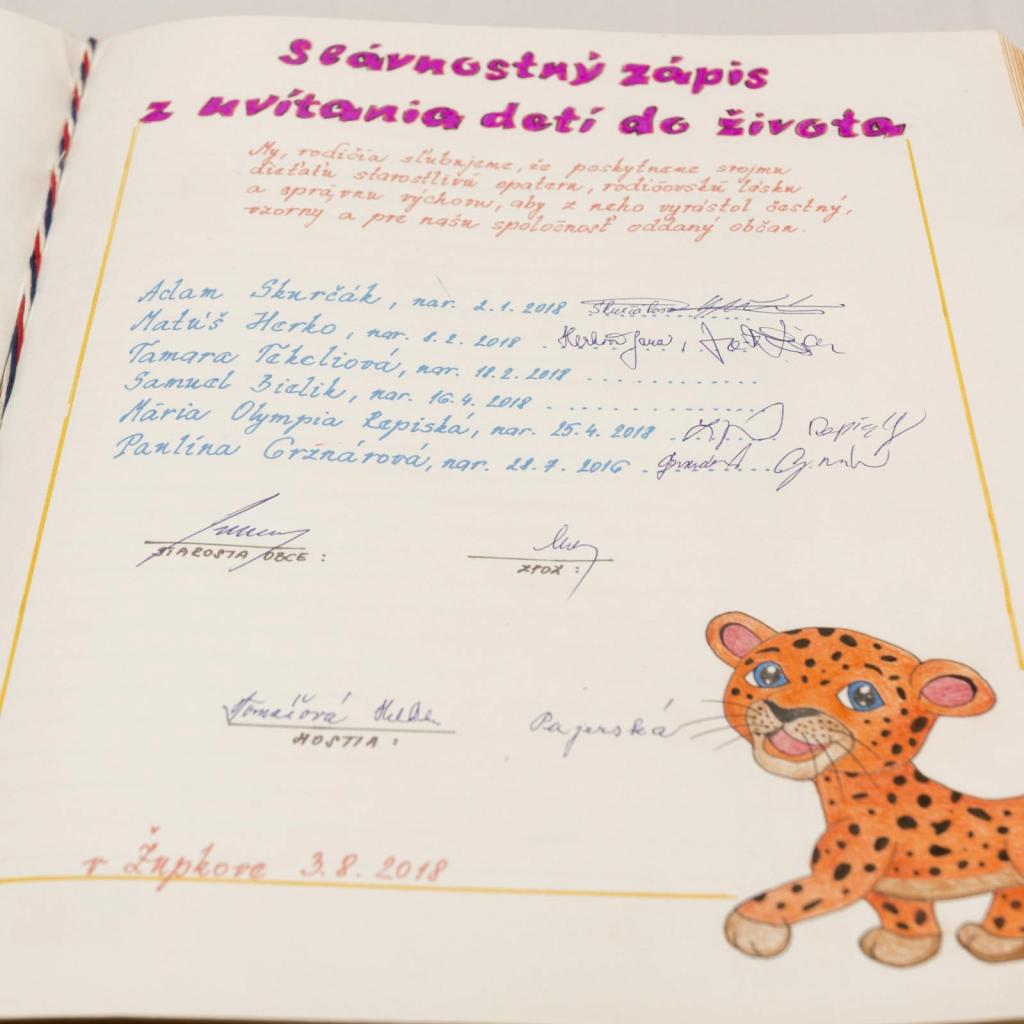 Slávnostný zápis
z uvítania detí do života
My, rodičia sľubujeme, že poskytneme svojmu
dieťaťu starostlivú opateru, rodičovskú lásku
a správnu výchovu, aby z neho vyrástol čestný,
vzorny a pre našu spoločnosť oddaný občan.
Adam Skurčák, nar. 2.1. 2018
Matúš Herko, nar. 8.2. 2018 Herková Jana,
Tamara Tekeliová, nar. 18.2. 2018
Samuel Bielik, nar. 16.4. 2018
Mária Olympia Repiská, nar. 25.4. 2018
Paulína Gržnárová, nar. 28.7. 2016
STAROSTA OBCE : ZPOZ :
Tomašová Pajerská
HOSTIA :
v Župkove 3.8.2018